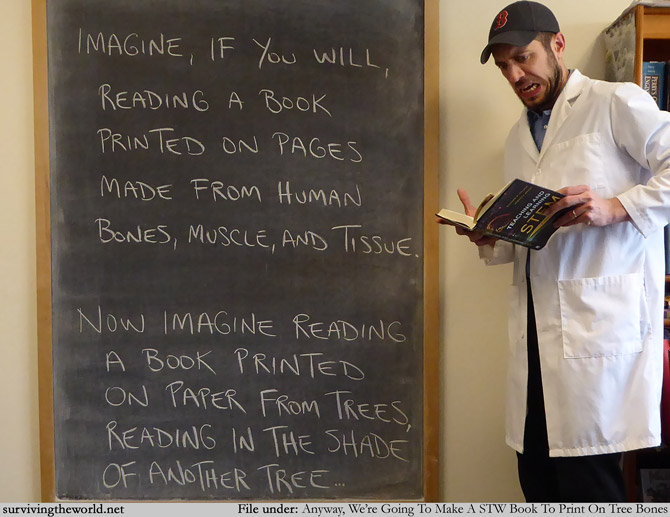 IMAGINE, IF YOU WILL,
READING A BOOK
PRINTED ON PAGES
MADE FROM HUMAN
BONES, MUSCLE, AND TISSUE.
NOW IMAGINE READING
A BOOK PRINTED
ON PAPER FROM TREES,
READING IN THE SHADE
OF ANOTHER TREE...
B
TEACHING AND
LEARNING
STEM
survivingtheworld.net
File under: Anyway, We're Going To Make A STW Book To Print On Tree Bones